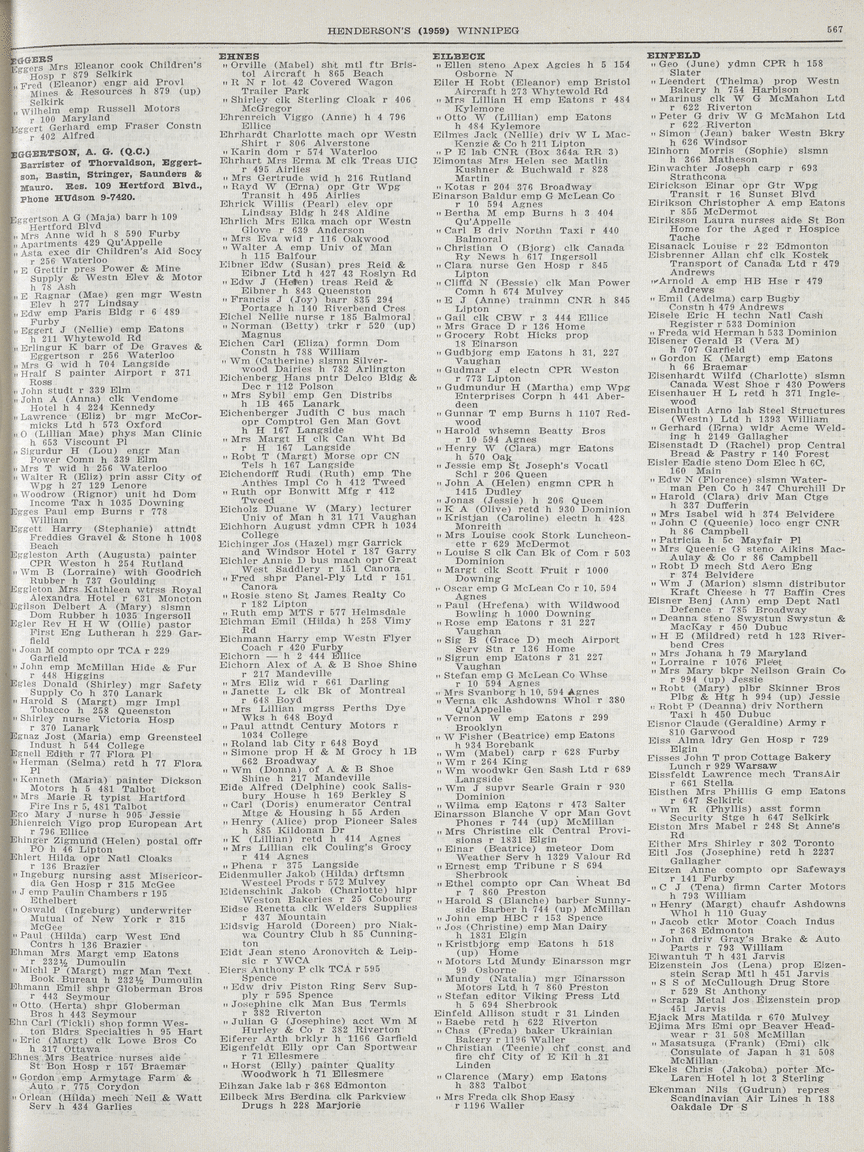 HENDERSON'S (1959) WINNIPEG
567
EGGERS
Eggers Mrs Eleanor cook Children's
Hosp r 879 Selkirk
" Fred (Eleanor) engr aid Provl
Mines & Resources h 879 (up)
Selkirk
" Wilhelm emp Russell Motors
r 100 Maryland
Eggert Gerhard emp Fraser Constn
r 402 Alfred
EGGERTSON, A. G. (Q.C.)
Barrister of Thorvaldson, Eggert-
son, Bastin, Stringer, Saunders &
Mauro. Res. 109 Hertford Blvd.,
Phone HUdson 9-7420.
Eggertson A G (Maja) barr h 109
Hertford Blvd
" Mrs Anne wid h 8 590 Furby
" Apartments 429 Qu'Appelle
" Asta exec dir Children's Aid Socy
r 256 Waterloo
" E Grettir pres Power & Mine
Supply & Westn Elev & Motor
h 78 Ash
" E Ragnar (Mae) gen mgr Westn
Elev h 277 Lindsay
" Edw emp Paris Bldg r 6 489
Furby
" Eggert J (Nellie) emp Eatons
h 211 Whytewold Rd
" Erlingur K barr of De Graves &
Eggertson r 256 Waterloo
" Mrs G wid h 704 Langside
" Hralf S painter Airport r 371
Ross
" John studt r 339 Elm
" John A (Anna) clk Vendome
Hotel h 4 224 Kennedy
" Lawrence (Eliz) br mgr McCor-
micks Ltd h 573 Oxford
" O (Lillian Mae) phys Man Clinic
h 653 Viscount Pl
" Sigurdur H (Lou) engr Man
Power Comn h 339 Elm
" Mrs T wid h 256 Waterloo
" Walter R (Eliz) prin assr City of
Wpg h 27 129 Lenore
" Woodrow (Rignor) unit hd Dom
Income Tax h 1035 Downing
Egges Paul emp Burns r 778
William
Eggett Harry (Stephanie) attndt
Freddies Gravel & Stone h 1008
Beach
Eggleston Arth (Augusta) painter
CPR Weston h 254 Rutland
" Wm B (Lorraine) with Goodrich
Rubber h 737 Goulding
Eggleton Mrs Kathleen wtrss Royal
Alexandra Hotel r 631 Moncton
Egilson Delbert A (Mary) slsmn
Dom Rubber h 1035 Ingersoll
Egler Rev H H W (Olie) pastor
First Eng Lutheran h 229 Gar-
field
" Joan M compto opr TCA r 229
Garfield
" John emp McMillan Hide & Fur
r 448 Higgins
Egles Donald (Shirley) mgr Safety
Supply Co h 370 Lanark
" Harold S (Margt) mgr Impl
Tobacco h 258 Queenston
" Shirley nurse Victoria Hosp
r 370 Lanark
Egnaz Jost (Maria) emp Greensteel
Indust h 544 College
Egnell Edith r 77 Flora Pl
" Herman (Selma) retd h 77 Flora
Pl
" Kenneth (Maria) painter Dickson
Motors h 5 481 Talbot
" Mrs Marie R typist Hartford
Fire Ins r 5, 481 Talbot
Ego Mary J nurse h 905 Jessie
Ehlenreich Vigo prop European Art
r 796 Ellice
Ehinger Zigmund (Helen) postal offr
PO h 46 Lipton
Ehlert Hilda opr Natl Cloaks
r 136 Brazier
" Ingeburg nursing asst Misericor-
dia Gen Hosp r 315 McGee
" J emp Paulin Chambers r 195
Ethelbert
" Oswald (Ingeburg) underwriter
Mutual of New York r 315
McGee
" Paul (Hilda) carp West End
Contrs h 136 Brazier
Ehman Mrs Margt emp Eatons
r 232½ Dumoulin
" Michl P (Margt) mgr Man Text
Book Bureau h 232½ Dumoulin
Ehmann Emil shpr Globerman Bros
r 443 Seymour
" Otto (Herta) shpr Globerman
Bros h 443 Seymour
Ehn Carl (Tickli) shop formn Wes-
ton Bldrs Specialties h 95 Hart
" Eric (Margt) clk Lowe Bros Co
h 317 Ottawa
Ehnes Mrs Beatrice nurses aide
St Bon Hosp r 157 Braemar
" Gordon emp Armytage Farm &
Auto r 775 Corydon
" Orlean (Hilda) mech Neil & Watt
Serv h 434 Garlies
EHNES
" Orville (Mabel) sht mtl ftr Bris-
tol Aircraft h 865 Beach
" R N r lot 42 Covered Wagon
Trailer Park
" Shirley clk Sterling Cloak r 406
McGregor
Ehrenreich Viggo (Anne) h 4 796
Ellice
Ehrhardt Charlotte mach opr Westn
Shirt r 806 Alverstone
" Karin dom r 574 Waterloo
Ehrhart Mrs Erma M clk Treas UIC
r 495 Airlies
" Mrs Gertrude wid h 216 Rutland
" Rayd W (Erna) opr Gtr Wpg
Transit h 495 Airlies
Ehrick Willis (Pearl) elev opr
Lindsay Bldg h 248 Aldine
Ehrlich Mrs Elka mach opr Westn
Glove r 639 Anderson
" Mrs Eva wid r 116 Oakwood
" Walter A emp Univ of Man
h 115 Balfour
Eibner Edw (Susan) pres Reid &
Eibner Ltd h 427 43 Roslyn Rd
" Edw J (Helen) treas Reid &
Eibner h 843 Queenston
" Francis J (Joy) barr 835 294
Portage h 140 Riverbend Cres
Eichel Nellie nurse r 185 Balmoral
" Norman (Betty) trkr r 520 (up)
Magnus
Eichen Carl (Eliza) formn Dom
Constn h 788 William
" Wm (Catherine) slsmn Silver-
wood Dairies h 782 Arlington
Eichenberg Hans pntr Delco Bldg &
Dec r 112 Polson
" Mrs Sybil emp Gen Distribs
h 1B 465 Lanark
Eichenberger Judith C bus mach
opr Comptrol Gen Man Govt
h H 167 Langside
" Mrs Margt H clk Can Wht Bd
r H 167 Langside
" Robt T (Margt) Morse opr CN
Tels h 167 Langside
Eichendorff Rudl (Ruth) emp The
Anthes Impl Co h 412 Tweed
" Ruth opr Bonwitt Mfg r 412
Tweed
Eicholz Duane W (Mary) lecturer
Univ of Man h 31 171 Vaughan
Eichhorn August ydmn CPR h 1034
College
Eichinger Jos (Hazel) mgr Garrick
and Windsor Hotel r 187 Garry
Eichler Annie D bus mach opr Great
West Saddlery r 151 Canora
" Fred shpr Panel-Ply Ltd r 151
Canora
" Rosie steno St James Realty Co
r 182 Lipton
" Ruth emp MTS r 577 Helmsdale
Eichman Emil (Hilda) h 258 Vimy
Rd
Eichmann Harry emp Westn Flyer
Coach r 420 Furby
Eichorn — h 2 444 Ellice
Eichorn Alex of A & B Shoe Shine
r 217 Mandeville
" Mrs Eliz wid r 661 Darling
" Janette L clk Bk of Montreal
r 648 Boyd
" Mrs Lillian mgrss Perths Dye
Wks h 648 Boyd
" Paul attndt Century Motors r
1034 College
" Roland lab City r 648 Boyd
" Simone prop H & M Grocy h 1B
662 Broadway
" Wm (Donna) of A & B Shoe
Shine h 217 Mandeville
Eide Alfred (Delphine) cook Salis-
bury House h 169 Berkley S
" Carl (Doris) enumerator Central
Mtge & Housing h 55 Arden
" Henry (Alice) prop Pioneer Sales
h 885 Kildonan Dr
" K (Lillian) retd h 414 Agnes
" Mrs Lillian clk Couling's Grocy
r 414 Agnes
" Phena r 375 Langside
Eidenmuller Jakob (Hilda) drftsmn
Westeel Prods r 572 Mulvey
Eidenschink Jakob (Charlotte) hlpr
Weston Bakeries r 25 Cobourg
Eidse Renetta clk Welders Supplies
r 437 Mountain
Eidsvig Harold (Doreen) pro Niak-
wa Country Club h 85 Cunning-
ton
Eidt Jean steno Aronovitch & Leip-
sic r YWCA
Eiers Anthony P clk TCA r 595
Spence
" Edw driv Piston Ring Serv Sup-
ply r 595 Spence
" Josephine clk Man Bus Termls
r 382 Riverton
" Julian G (Josephine) acct Wm M
Hurley & Co r 382 Riverton
Eiferer Arth brklyr h 1166 Garfield
Eigenfeldt Elly opr Can Sportwear
r 71 Ellesmere
" Horst (Elly) painter Quality
Woodwork h 71 Ellesmere
Eihzan Jake lab r 368 Edmonton
Eilbeck Mrs Berdina clk Parkview
Drugs h 228 Marjorie
EILBECK
" Ellen steno Apex Agcies h 5 154
Osborne N
Eiler H Robt (Eleanor) emp Bristol
Aircraft h 273 Whytewold Rd
" Mrs Lillian H emp Eatons r 484
Kylemore
" Otto W (Lillian) emp Eatons
h 484 Kylemore
Eilmes Jack (Nellie) driv W L Mac-
Kenzie & Co h 211 Lipton
" P E lab CNR (Box 364a RR 3)
Eimontas Mrs Helen sec Matlin
Kushner & Buchwald r 828
Martin
" Kotas r 204 376 Broadway
Einarson Baldur emp G McLean Co
r 10 594 Agnes
" Bertha M emp Burns h 3 404
Qu'Appelle
" Carl B driv Northn Taxi r 440
Balmoral
" Christian O (Bjorg) clk Canada
Ry News h 617 Ingersoll
" Clara nurse Gen Hosp r 845
Lipton
" Cliffd N (Bessie) clk Man Power
Comn h 674 Mulvey
" E J (Anne) trainmn CNR h 845
Lipton
" Gail clk CBW r 3 444 Ellice
" Mrs Grace D r 136 Home
" Grocery Robt Hicks prop
18 Einarson
" Gudbjorg emp Eatons h 31, 227
Vaughan
" Gudmar J electn CPR Weston
r 773 Lipton
" Gudmundur H (Martha) emp Wpg
Enterprises Corpn h 441 Aber-
deen
" Gunnar T emp Burns h 1107 Red-
wood
" Harold whsemn Beatty Bros
r 10 594 Agnes
" Henry W (Clara) mgr Eatons
h 570 Oak
" Jessie emp St Joseph's Vocatl
Schl r 206 Queen
" John A (Helen) engmn CPR h
1415 Dudley
" Jonas (Jessie) h 206 Queen
" K A (Olive) retd h 930 Dominion
" Kristjan (Caroline) electn h 428
Montreith
" Mrs Louise cook Stork Luncheon-
ette r 629 McDermot
" Louise S clk Can Bk of Com r 503
Dominion
" Margt clk Scott Fruit r 1000
Downing
" Oscar emp G McLean Co r 10, 594
Agnes
" Paul (Hrefena) with Wildwood
Bowling h 1000 Downing
" Rose emp Eatons r 31 227
Vaughan
" Sig B (Grace D) mech Airport
Serv Stn r 136 Home
" Sigrun emp Eatons r 31 227
Vaughan
" Stefan emp G McLean Co Whse
r 10 594 Agnes
" Mrs Svanborg h 10, 594 Agnes
" Verna clk Ashdowns Whol r 380
Qu'Appelle
" Vernon W emp Eatons r 299
Brooklyn
" W Fisher (Beatrice) emp Eatons
h 934 Borebank
" Wm (Mabel) carp r 628 Furby
" Wm r 264 King
" Wm woodwkr Gen Sash Ltd r 689
Langside
" Wm J supvr Searle Grain r 930
Dominion
" Wilma emp Eatons r 473 Salter
Einarsson Blanche V opr Man Govt
Phones r 744 (up) McMillan
" Mrs Christine clk Central Provi-
sions r 1831 Elgin
" Einar (Beatrice) meteor Dom
Weather Serv h 1329 Valour Rd
" Ernest emp Tribune r S 694
Sherbrook
" Ethel compto opr Can Wheat Bd
r 7 860 Preston
" Harold S (Blanche) barber Sunny-
side Barber h 744 (up) McMillan
" John emp HBC r 153 Spence
" Jos (Christine) emp Man Dairy
h 1831 Elgin
" Kristbjorg emp Eatons h 518
(up) Home
" Motors Ltd Mundy Einarsson mgr
99 Osborne
" Mundy (Natalia) mgr Einarsson
Motors Ltd h 7 860 Preston
" Stefan editor Viking Press Ltd
h 5 694 Sherbrook
Einfeld Allison studt r 31 Linden
" Baebe retd h 622 Riverton
" Chas (Freda) baker Ukrainian
Bakery r 1196 Waller
" Christian (Teenie) chf const and
fire chf City of E Kil h 31
Linden
" Clarence (Mary) emp Eatons
h 383 Talbot
" Mrs Freda clk Shop Easy
r 1196 Waller
EINFELD
" Geo (June) ydmn CPR h 158
Slater
" Leendert (Thelma) prop Westn
Bakery h 754 Harbison
" Marinus clk W G McMahon Ltd
r 622 Riverton
" Peter G driv W G McMahon Ltd
r 622 Riverton
" Simon (Jean) baker Westn Bkry
h 626 Windsor
Einhorn Morris (Sophie) slsmn
h 366 Matheson
Einwachter Joseph carp r 693
Strathcona
Eirickson Einar opr Gtr Wpg
Transit r 16 Sunset Blvd
Eirikson Christopher A emp Eatons
r 855 McDermot
Eiriksson Laura nurses aide St Bon
Home for the Aged r Hospice
Tache
Eisanack Louise r 22 Edmonton
Eisbrenner Allan chf clk Kostek
Transport of Canada Ltd r 479
Andrews
" Arnold A emp HB Hse r 479
Andrews
" Emil (Adelma) carp Bugby
Constn h 479 Andrews
Eisele Eric H techn Natl Cash
Register r 533 Dominion
" Freda wid Herman h 533 Dominion
Eisener Gerald B (Vera M)
h 707 Garfield
" Gordon K (Margt) emp Eatons
h 66 Braemar
Eisenhardt Wilfd (Charlotte) slsmn
Canada West Shoe r 430 Powers
Eisenhauer H L retd h 371 Ingle-
wood
Eisenhuth Arno lab Steel Structures
(Westn) Ltd h 1393 William
" Gerhard (Erna) wldr Acme Weld-
ing h 2149 Gallagher
Eisenstadt D (Rachel) prop Central
Bread & Pastry r 140 Forest
Eisler Eadie steno Dom Elec h 6C,
160 Main
" Edw N (Florence) slsmn Water-
man Pen Co h 347 Churchill Dr
" Harold (Clara) driv Man Ctge
h 337 Dufferin
" Mrs Isabel wid h 374 Belvidere
" John C (Queenie) loco engr CNR
h 86 Campbell
" Patricia h 5c Mayfair Pl
" Mrs Queenie G steno Aikins Mac-
Aulay & Co r 86 Campbell
" Robt D mech Std Aero Eng
r 374 Belvidere
" Wm J (Marion) slsmn distributor
Kraft Cheese h 77 Baffin Cres
Eisner Benj (Ann) emp Dept Natl
Defence r 785 Broadway
" Deanna steno Swystun Swystun &
MacKay r 450 Dubuc
" H E (Mildred) retd h 123 River-
bend Cres
" Mrs Johana h 79 Maryland
" Lorraine r 1076 Fleet
" Mrs Mary bkpr Neilson Grain Co
r 994 (up) Jessie
" Robt (Mary) plbr Skinner Bros
Plbg & Htg h 994 (up) Jessie
" Robt P (Deanna) driv Northern
Taxi h 450 Dubuc
Eisnor Claude (Geraldine) Army r
810 Garwood
Eiss Alma ldry Gen Hosp r 729
Elgin
Eisses John T prop Cottage Bakery
Lunch r 929 Warsaw
Eissfeldt Lawrence mech TransAir
r 661 Stella
Eisthen Mrs Phillis G emp Eatons
r 647 Selkirk
" Wm R (Phyllis) asst formn
Security Stge h 647 Selkirk
Eiston Mrs Mabel r 248 St Anne's
Rd
Either Mrs Shirley r 302 Toronto
Eitl Jos (Josephine) retd h 2237
Gallagher
Eitzen Anne compto opr Safeways
r 141 Furby
" C J (Tena) firmn Carter Motors
h 793 William
" Henry (Margt) chaufr Ashdowns
Whol h 110 Guay
" Jacob ctkr Motor Coach Indus
r 368 Edmonton
" John driv Gray's Brake & Auto
Parts r 793 William
Eiwantuh T h 431 Jarvis
Eizenstein Jos (Lena) prop Eizen-
stein Scrap Mtl h 451 Jarvis
" S S of McCullough Drug Store
r 529 St Anthony
" Scrap Metal Jos Eizenstein prop
451 Jarvis
Ejack Mrs Matilda r 670 Mulvey
Ejima Mrs Emi opr Beaver Head-
wear r 31 508 McMillan
" Masatsuga (Frank) (Emi) clk
Consulate of Japan h 31 508
McMillan
Ekels Chris (Jakoba) porter Mc-
Laren Hotel h lot 3 Sterling
Ekenman Nils (Gudrun) repres
Scandinavian Air Lines h 188
Oakdale Dr S